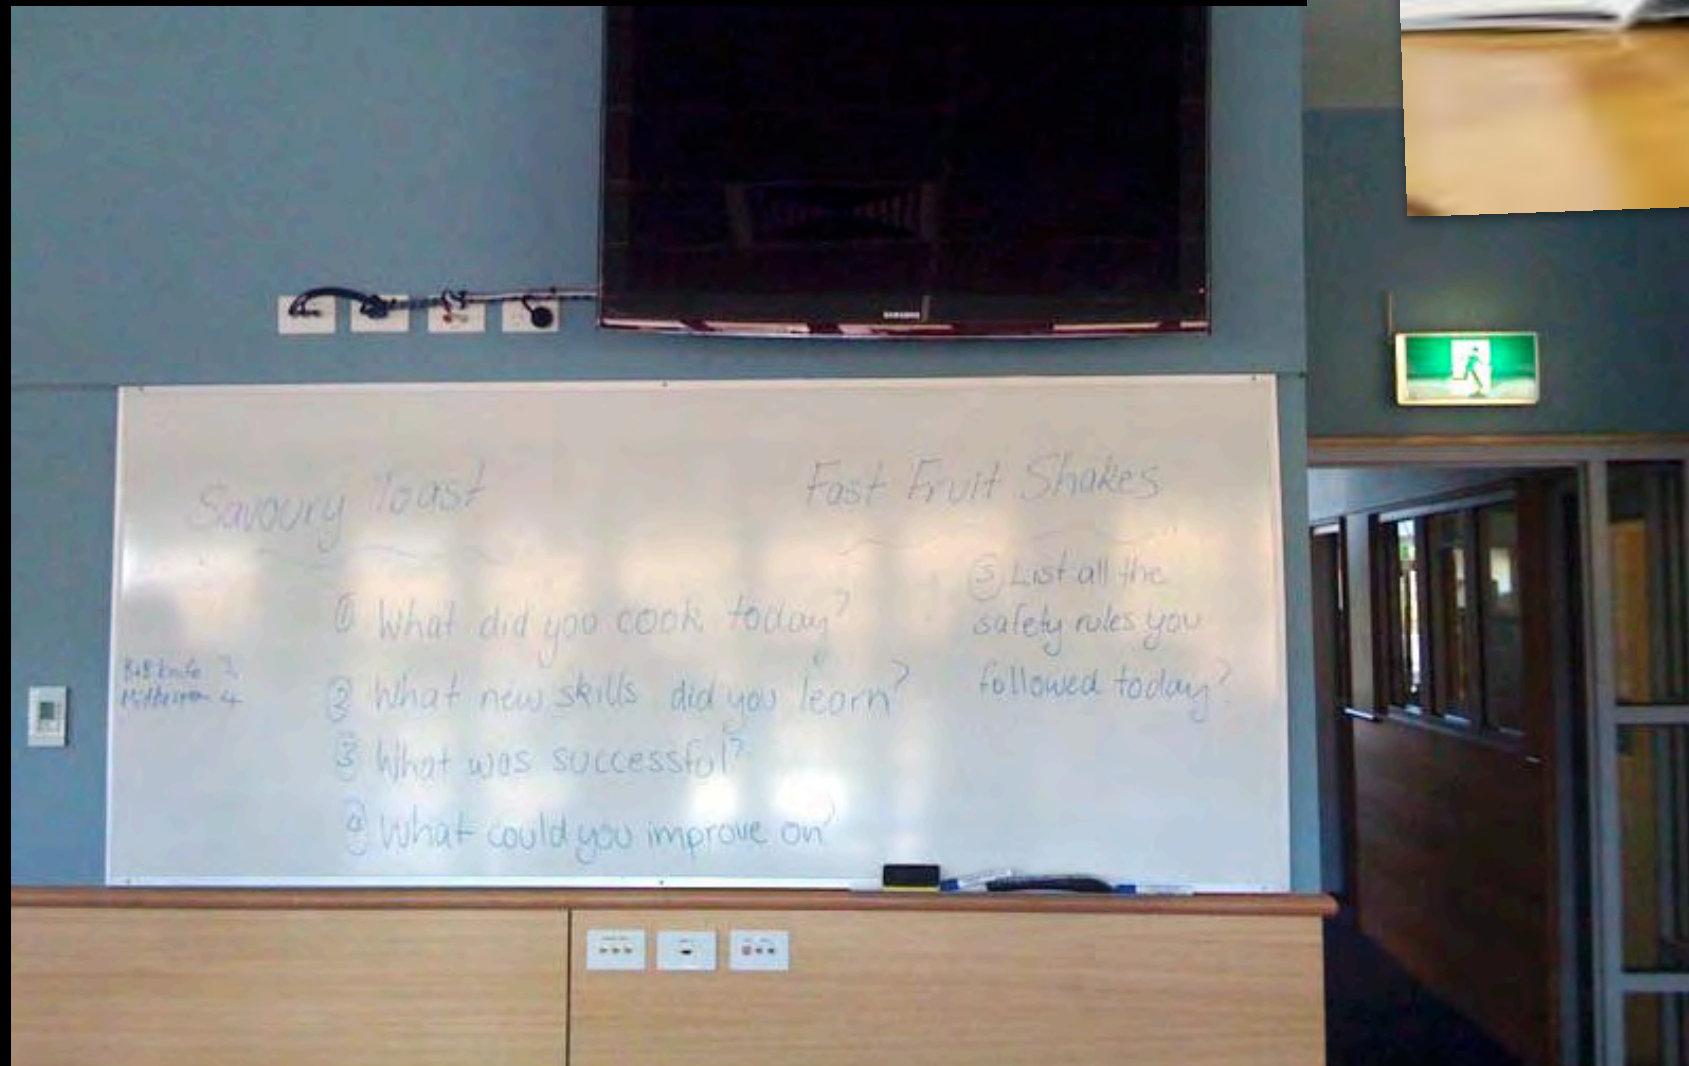 SAMSUNG
Savoury Toast
Fast Fruit Shakes
① What did you cook today?
② What new skills did you learn?
③ What was successful?
④ What could you improve on?
⑤ List all the
safety rules you
followed today?